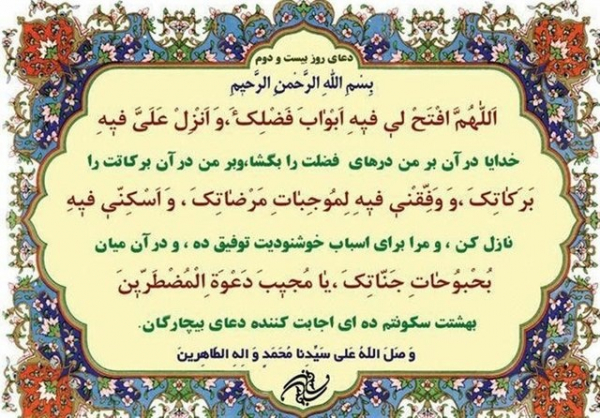 دعای روز بیست و دوم
بِسْمِ اللهِ الرَّحْمنِ الرَّحیمِ
اَللّهُمَّ افْتَحْ لی فیهِ اَبْوٰابَ فَضْلِکَ ،وَ اَنْزِلْ عَلَیَّ فیهِ
خدایا در آن بر من درهای فضلت را بگشا،وبر من در آن برکاتت را
بَرَکٰاتِکَ ،وَ وَفِّقْنی فیهِ لِمُوجِبٰاتِ مَرْضٰاتِکَ ، وَ اَسْکِنّی فیهِ
نازل کن ، و مرا برای اسباب خوشنودیت توفیق ده ، و در آن میان
بُحْبُوحٰاتِ جَنّٰاتِکَ ،یٰا مُجیبَ دَعْوَةِ الْمُضْطَرّینَ
بهشتت سکونتم ده ای اجابت کننده دعای بیچارگان.
وَ صَلَ اللهُ عَلی سَیِّدِنا مُحَمَدٍ وَ الِهِ الطاهِرینَ